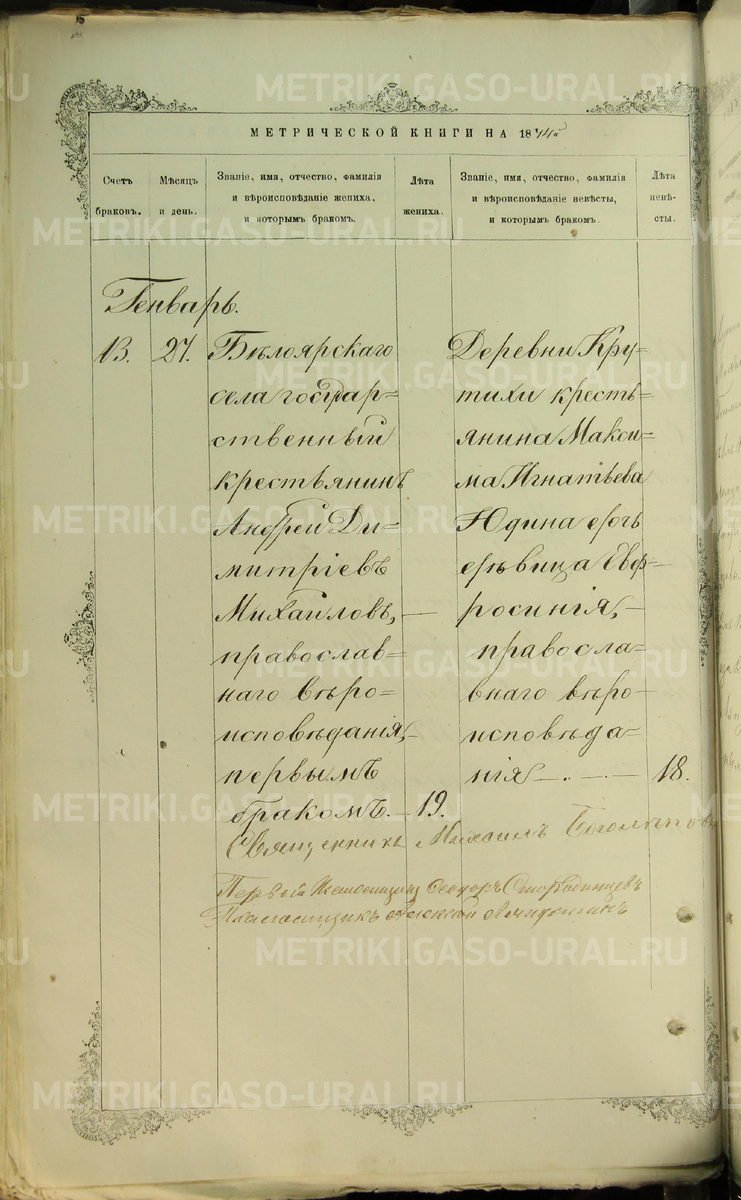 МЕТРИЧЕСКОЙ КНИГИ НА 18
Счетъ браковъ.
Мѣсяцъ и день.
Званіе, имя, отчество, фамилія
и вѣроисповѣданіе жениха,
и которымъ бракомъ.
Лѣта
жениха.
Званіе, имя, отчество, фамилія
и вѣроисповѣданіе невѣсты,
и которымъ бракомъ.
Лѣта
невѣ-
сты.
Генварь.
13. 27.
Бѣлоярскаго
села государ=
ственный
крестьянинъ
Андрей Ди=
митріевъ
Михайловъ,
православ=
наго вѣро=
исповѣданія,
первымъ
бракомъ. 19.
Деревни Кру=
тихи кресть=
янина Макси=
ма Игнатьева
Юдина дочь
дѣвица Евф=
росинія,
правосла=
внаго вѣро=
исповѣда=
нія 18.
Священникъ Михаилъ
Первой Феодоръ
Псаломщикъ Алексѣй
METRIKI.GASO-URAL.RU